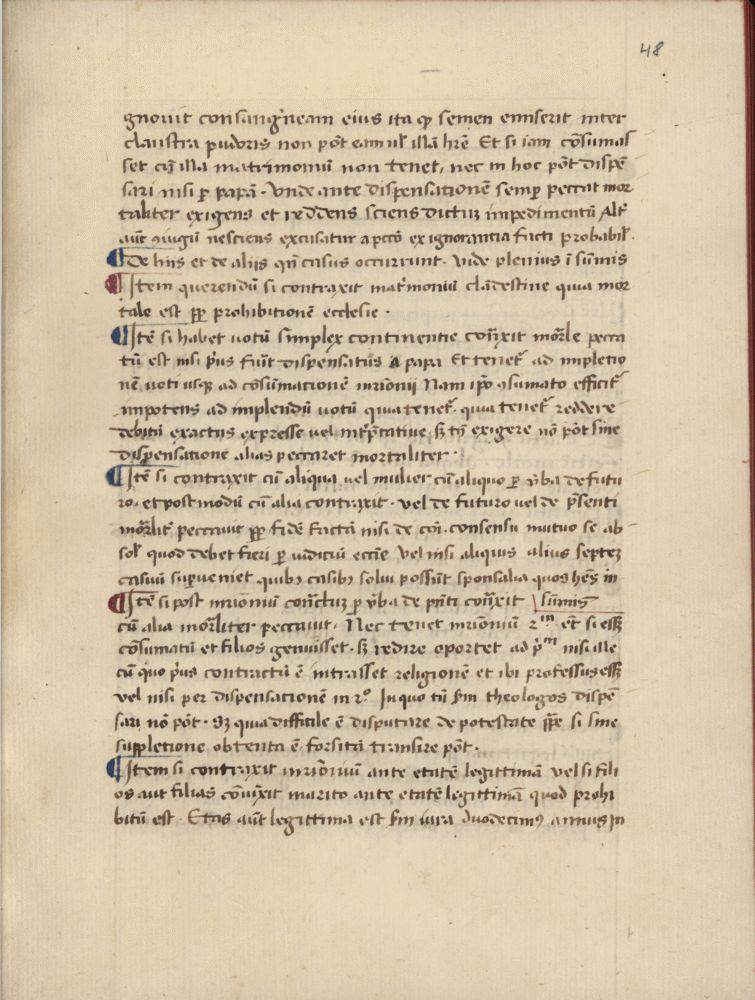 48
gnouit consang'neam eius ita ꝙ semen emiserit inter
claustra pudoris non pōt eam ul' illā hr̄e Et si iam cōsumas
set cū illa matrimoniū non tenet, nec in hoc pōt dispē
sari nisi ꝑ papā · Vnde ante dispensationē semꝑ peccat mor
taliter exigens et reddens sciens dictū impedimentū Alt'
aūt ꝯiugū nesciens excusatur a pctō ex ignorantia facti probabil'.
¶ De hiis et de aliis qn̄ casus occurrunt · vide plenius ī sūmis
¶ Item querendū si contraxit mat'moniū clādestine quia mor
tale est ꝓꝑ prohibitionē ecclesie ·
¶ Itē si habet uotū simplex continentie cōt'xit mōrle pecca
tū est nisi p'us fūit dispensatus a papa Et tenet' ad impletio
nē uoti usꝙ ad cōsumacionē mr̄ionij Nam ip̄o ꝯsumato efficit'
impotens ad implendū uotū quia tenet' · quia tenet' reddere
debitū exactus expresse uel int'p̄tatiue, sꝫ tn̄ exigere nō pōt sine
dispensatione alias peccaret mortaliter ·
¶ Itē si contraxit cū aliqua, uel mulier cū aliquo ꝑ v̄ba de futu
ro, et postmodū cū alia contraxit · vel de futuro uel de p̄senti
mōrlit' peccauit ꝓꝑ fidē factā nisi de cōi · consensu mutuo se ab
sol' quod debet fieri ꝑ iudiciū eccīe vel nisi aliquis alius septeꝫ
casuū supueniet quibꝫ casibꝫ solui possūt sponsalia quos hēs in
¶ Itē si post mr̄ioniū cont̄ctū ꝑ v̄ba de pn̄ti cōt'xit \ sūmis
cū alia mōrliter peccauit · Nec tenet mr̄ioniū 2ᵐ et si esꝫ
cōsumatū et filios genuisset · sꝫ redire oportet ad p̄ᵐ nisi ille
cū quo p'us contractū ē intrasset religionē et ibi professus esꝫ
vel nisi per dispensationē in 2° In quo tn̄ sm̄ theologos dispē
sari nō pōt · Sꝫ quia difficile ē disputare de potestate pp̄e si sine
suppletione obtenta ē forsitā transire pōt ·
¶ Item si contraxit mr̄ioniū ante etatē legittimā vel si fili
os aut filias cōiūxit marito ante etatē legittimā quod prohi
bitū est · Etas aūt legittima est sm̄ iura duodecimꝰ annus in